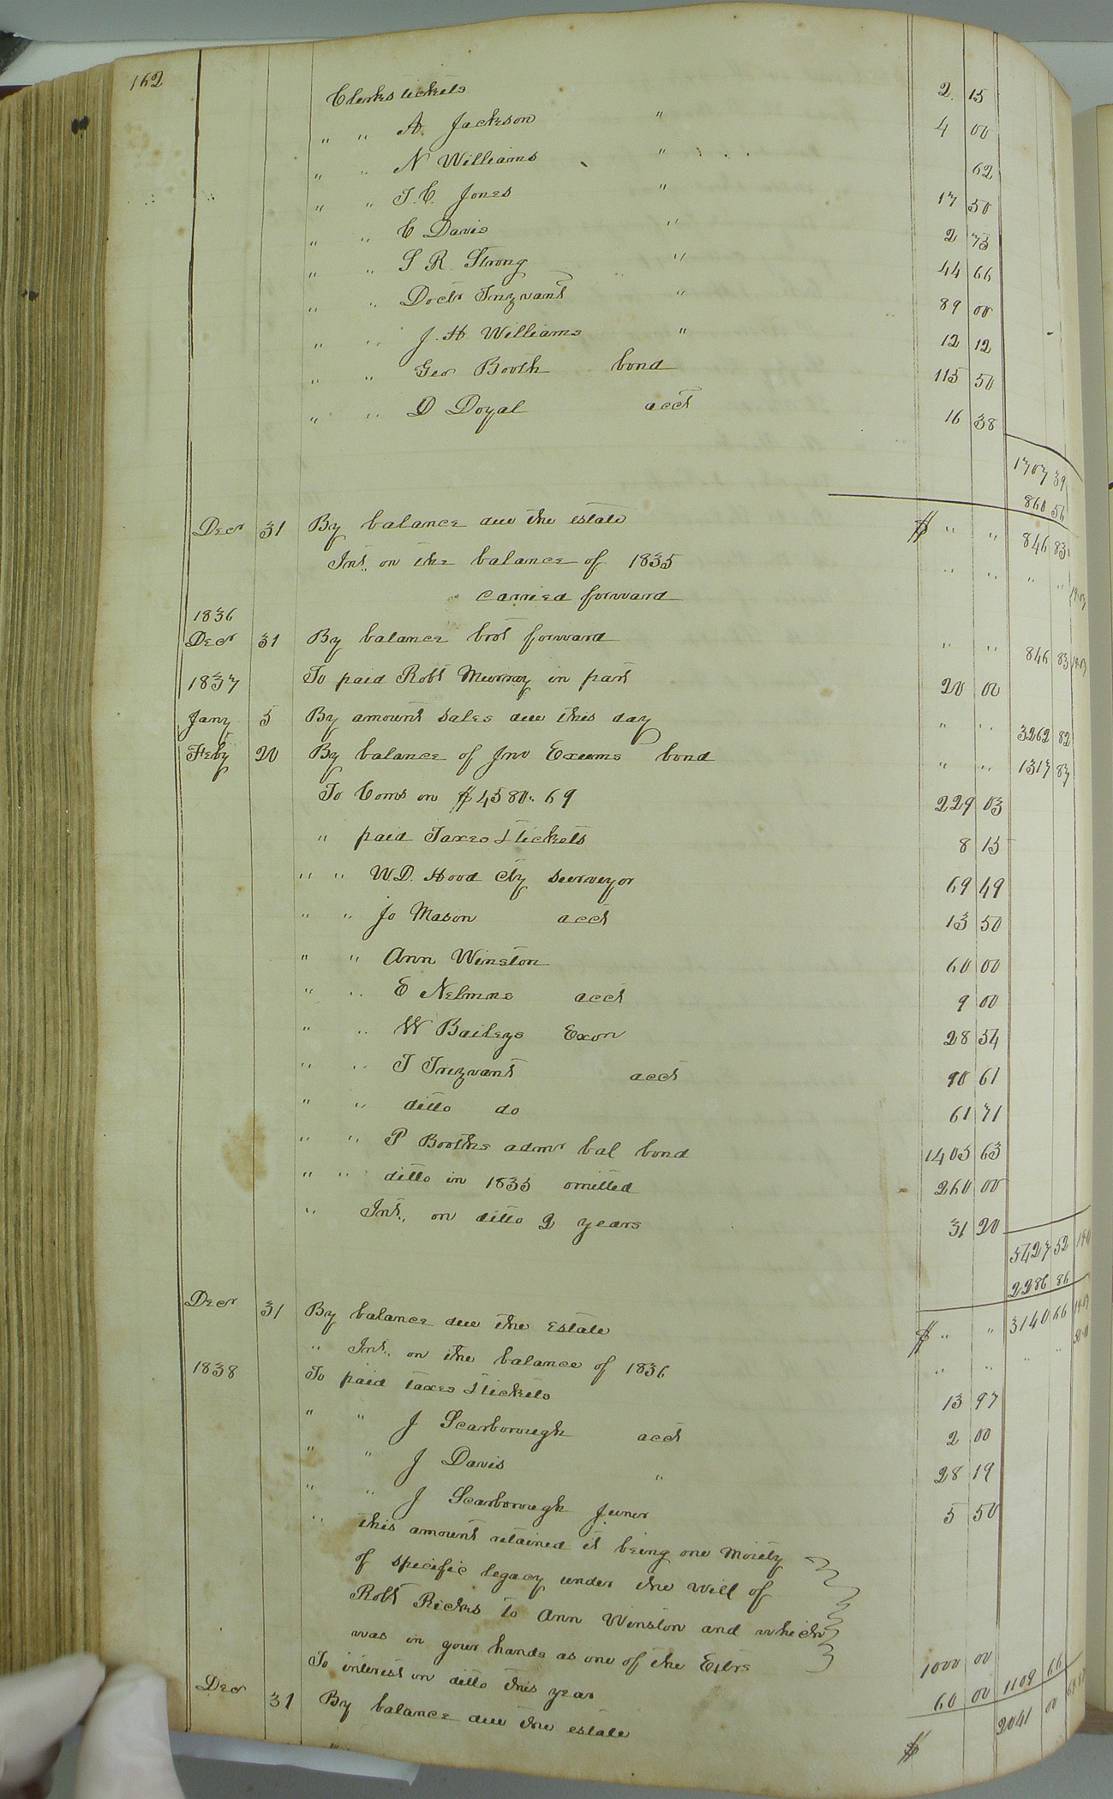 162
Clerks tickets 2. 15
" " A. Jackson " 4 00
" " N Williams " 62
" " T. C. Jones " 17 50
" " C Davis " 2 75
" " S R. Strong " 44 66
" " Doctr Trezvant " 89 00
" " J. H Williams " 12 12
" " Geo Booth bond 115 50
" " D Doyal acct 16 38
1707 39
860 56
Decr 31 By balance due the estate $ " " 846 83
Int. on the balance of 1835 " " " "
carried forward
1836
Decr 31 By balance brot forward " " 846 83
1837 To paid Robt Murray in part 20 00
Jany 5 By amount sales due this day " " 3262 82
Feby 20 By balance of Jno Exums bond " " 1317 87
To Coms on $4580.69 229 03
" paid Taxes & tickets 8 15
" " W. D. Hood Cty surveyor 69 49
" " Jo Mason acct 13 50
" " Ann Winston 60 00
" " E Nelmms acct 9 00
" " W Baileys Exon 28 54
" " T Trezvant acct 90 61
" " ditto do 61 71
" " P Booths admr bal bond 1405 63
" " ditto in 1835 omitted 260 00
" Int., on ditto 2 years 31 20
5427 52
2286 86
Decr 31 By balance due the Estate $ " " 3140 66
" Int. on the balance of 1836 " " " "
1838 To paid taxes & tickets 13 97
" " J Scarborough acct 2 00
" " J Davis " 28 19
" " J Scarborough Junr 5 50
" this amount retained it being one Moiety
of specific legacy under the Will of
Robt Ricks to Ann Winston and which
was in your hands as one of the Exbrs 1000 00
To interest on ditto this year 60 00 1109 66
Decr 31 By balance due the estate $ 2041 00